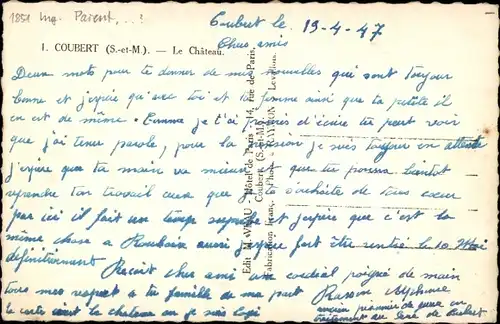 1851 Ing. Parent...!
Coubert le 19-4-47
1. COUBERT (S.-et-M.). — Le Château.
Chers amis
Deux mots pour te donner de mes nouvelles qui sont toujours
bonne et j'espère qu'avec toi et ta femme ainsi que ta petite il
en est de même. Comme je t'ai promis d'écrire tu peut voir
que j'ai tenu parole, pour la je suis toujours en attente
j'espère que ta main va mieux et que tu pourra bientôt
reprendre ton travail ceux que je souhaite de tous cœur
par ici il fait un temps superbe et j'espère que c'est la
même chose a Roubaix aussi j'espère fort être rentré le 10 Mai
définitivement Reçoit cher ami un cordial poigné de main
tous mes respect a ta famille de ma part
la carte c'est le chateau ou je suis logé
Alphonse
ancien prisonnier de guerre en
traitement au de Coubert
Edit M. VEAU, Hôtel de Paris, 14, rue de Paris,
Coubert (S.-et-M.)
Fabrication Franç. d'Phot. RAYMON, Levallois.